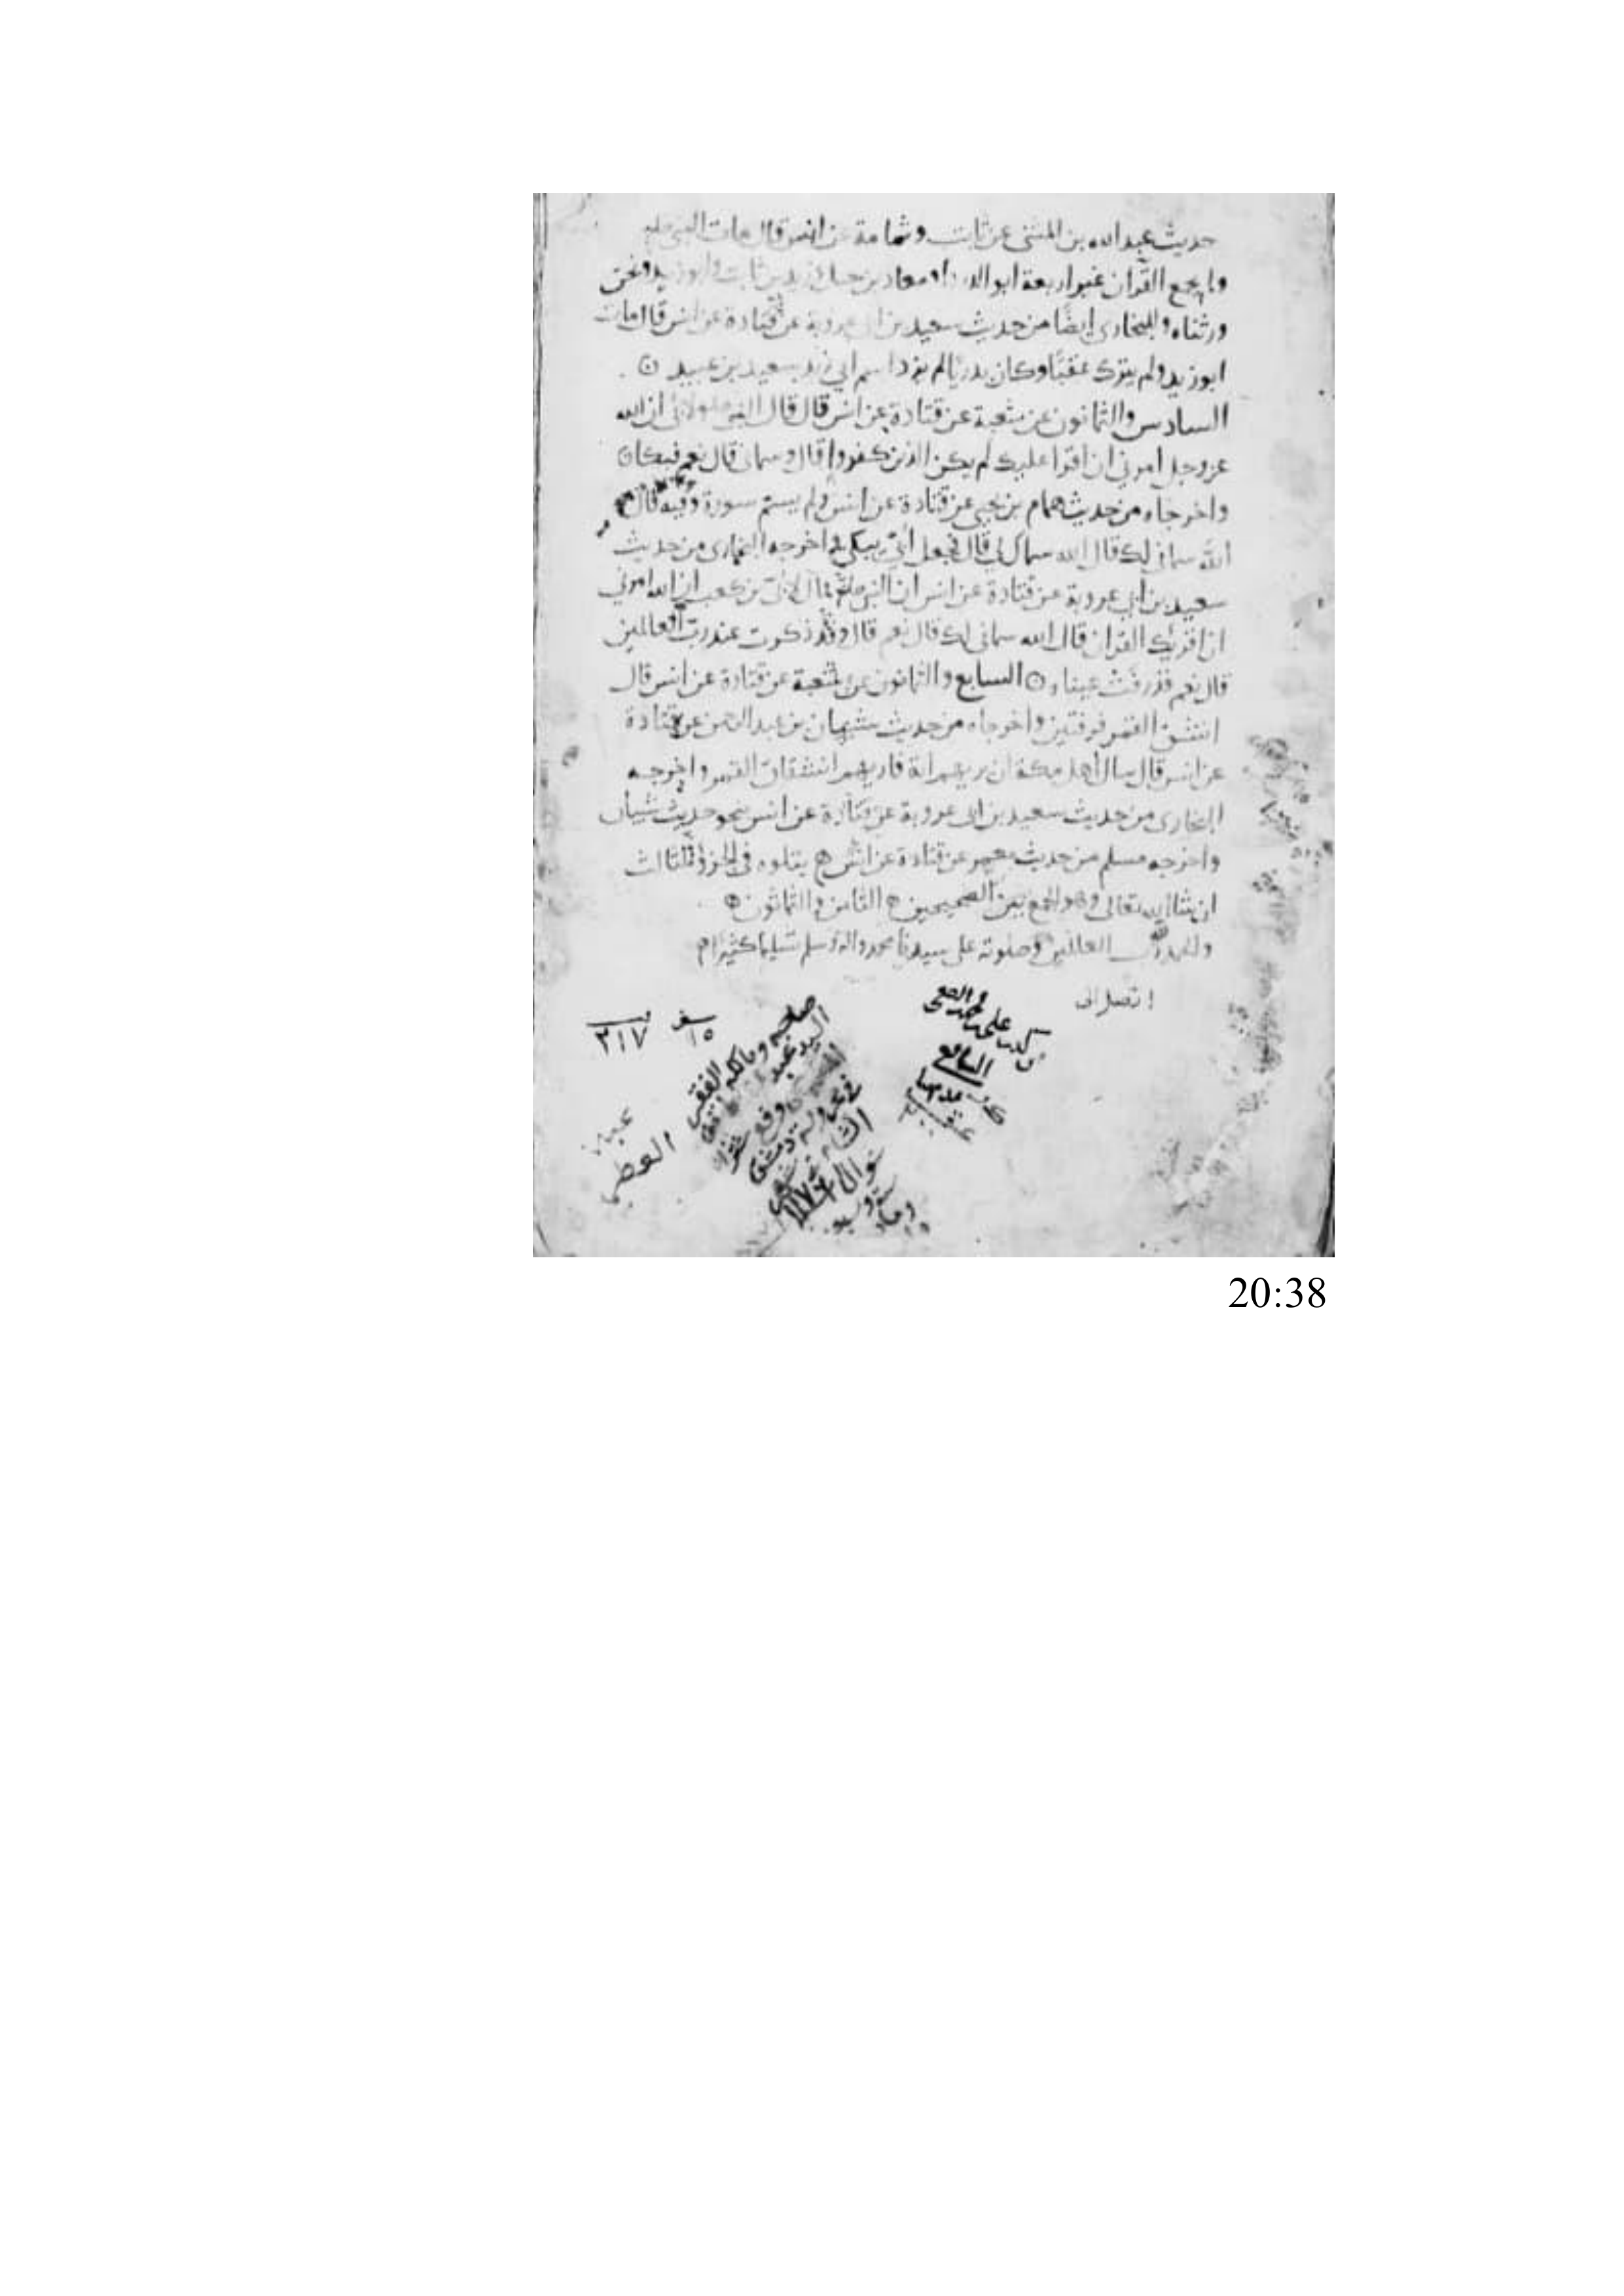 حديث عبد الله بن المثنى عن ثابت وثمامة عن انس قال مات النبي صلعم
ولم يجمع القرآن غير اربعة ابو الدرداء ومعاذ بن جبل وزيد بن ثابت وابو زيد ونحن
ورثناه وللبخاري ايضًا من حديث سعيد بن ابي عروبة عن قتادة عن انس قال مات
ابو زيد ولم يترك عقبًا وكان بدريًا لم يزد اسم ابي زيد سعيد بن عبيد
السادس والثمانون عن شعبة عن قتادة عن انس قال قال النبي لابي ان الله
عز وجل امرني ان اقرا عليك لم يكن الذين كفروا قال وسماني قال نعم فبكان
واخرجاه من حديث همام بن يحيى عن قتادة عن انس ولم يسم سورة وفيه قال
الله سماني لك قال الله سماك لي قال فجعل أبيّ يبكي واخرجه البخاري من حديث
سعيد بن ابي عروبة عن قتادة عن انس ان النبي صلعم قال لابي بن كعب ان الله امرني
ان اقريك القران قال الله سماني لك قال نعم قال وقد ذكرت عند رب العالمين
قال نعم فذرفت عيناه السابع والثمانون عن شعبة عن قتادة عن انس قال
انشق القمر فرقتين واخرجاه من حديث شيبان بن عبد الرحمن عن قتادة
عن انس قال سال اهل مكة ان يريهم اية فاريهم انشقاق القمر واخرجه
البخاري من حديث سعيد بن ابي عروبة عن قتادة عن انس نحو حديث شيبان
واخرجه مسلم من حديث معمر عن قتادة عن انس ه يتلوه في الجزو الثالث
ان شا الله تعالى وهو الجمع بين الصحيحين ه الثامن والثمانون ه
والحمد لله رب العالمين وصلوته على سيدنا محمد واله وسلم تسليما كثيرا م
صاحبه ومالكه الفقير
السيد عبد
دمشق
الشام
شوال
١١٧٦
١٥
٣١٧
20:38